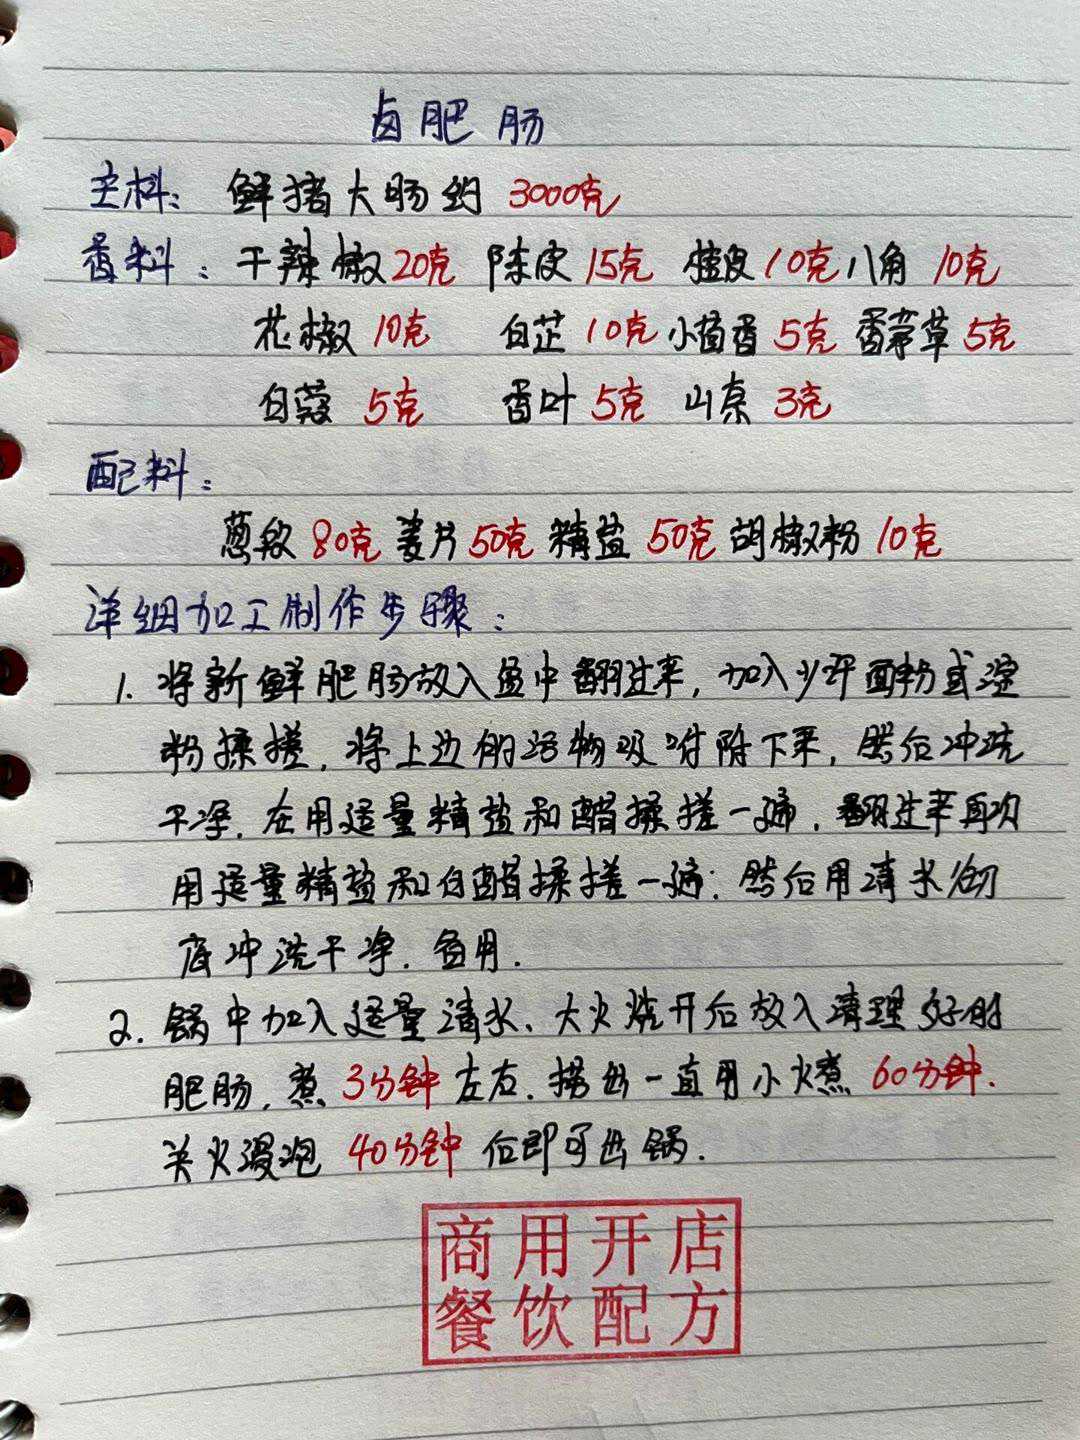 卤肥肠
主料：鲜猪大肠约 3000克
香料：干辣椒20克 陈皮15克 桂皮10克 八角10克
花椒10克 白芷10克 小茴香5克 香茅草5克
白蔻5克 香叶5克 山奈3克
配料：
葱段80克 姜片50克 精盐50克 胡椒粉10克
详细加工制作步骤：
1. 将新鲜肥肠放入盆中翻过来，加入少许面粉或淀
粉揉搓，将上边的污物吸附下来，然后冲洗
干净，在用适量精盐和醋揉搓一遍，翻过来再次
用适量精盐和白醋揉搓一遍；然后用清水彻
底冲洗干净．备用．
2. 锅中加入适量清水、大火烧开后放入清理好的
肥肠，煮3分钟左右．捞出一直用小火煮60分钟．
关火浸泡40分钟后即可出锅．
商用开店
餐饮配方